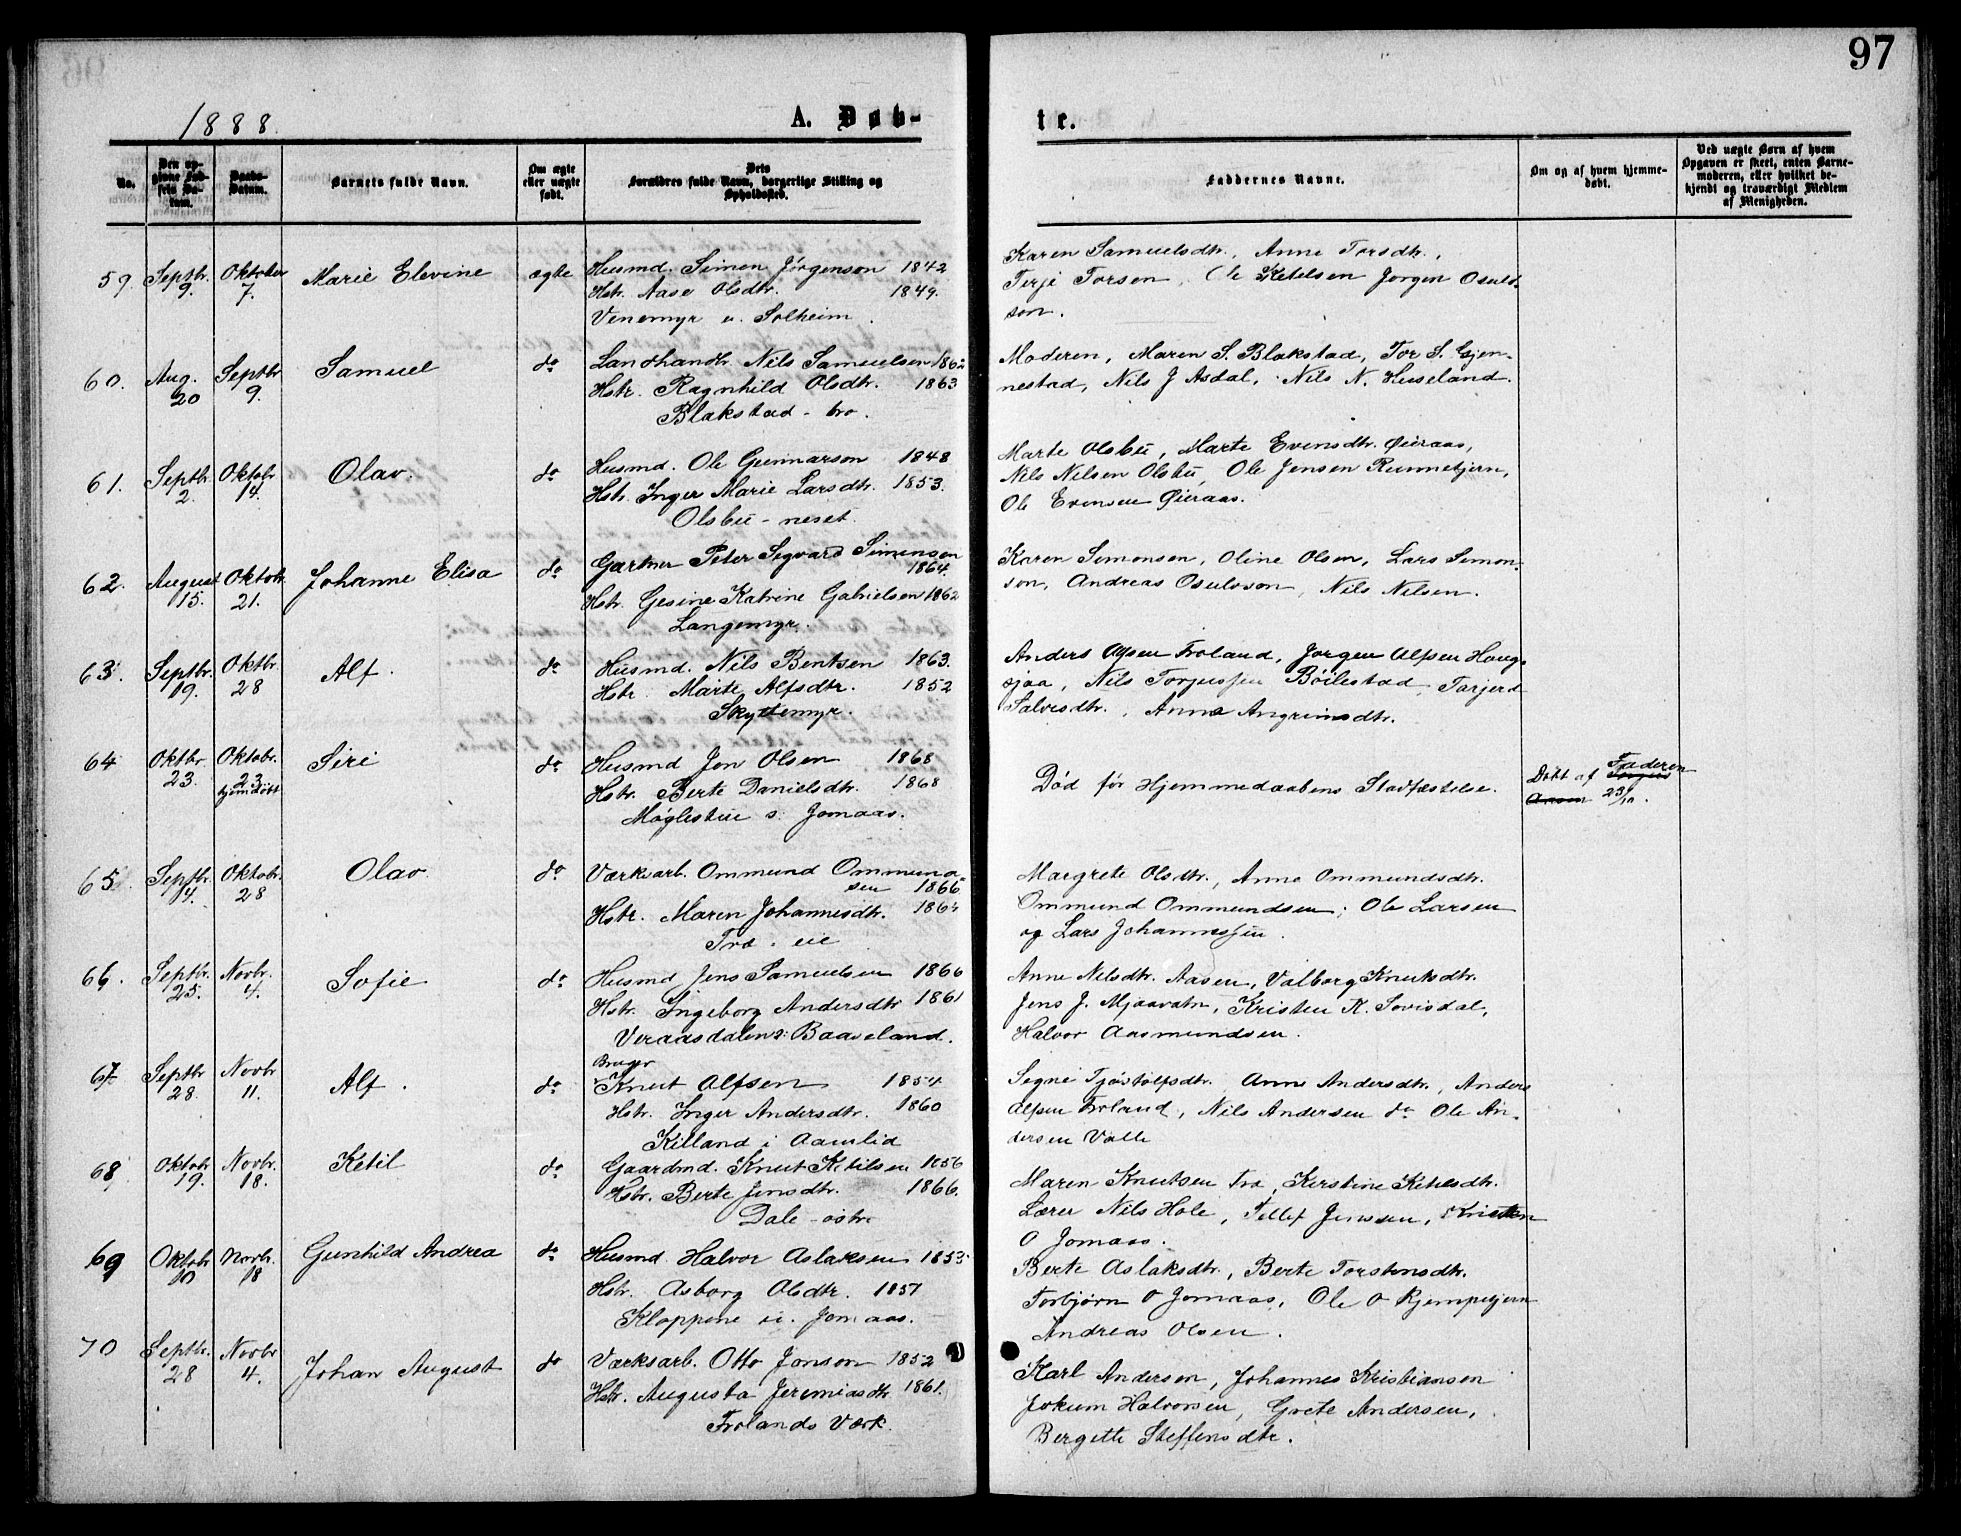 97
1888.
A. Døb-
te.
No.
Den op-
givne Fød-
sels Da-
tum.
Daabs-
Datum.
Barnets fulde Navn.
Om ægte
eller uægte
født.
Dets
Forældres fulde Navn, borgerlige Stilling og
Opholdssted.
Faddernes Navne.
Om og af hvem hjemme-
døbt.
Ved uægte Børn af hvem
Opgaven er skeet, enten Barne-
moderen, eller hvilket be-
kjendt og troværdigt Medlem
af Menigheden.
59 Septbr. 9. Oktober 7. Marie Elevine ægte
Husmd. Simon Jørgenson 1842
Hstr. Aase Olsdtr. 1849.
Venemyr u. Solheim.
Karen Samuelsdtr., Anne Torsdtr.,
Terje Torsen, Ole Ketelsen Jørgen Osuld-
son.
60. Aug. 20 Septbr 9. Samuel do
Landhandlr. Nils Samuelsen 1862
Hstr. Ragnhild Olsdtr. 1863
Blakstad-bro.
Moderen, Maren S. Blakstad, Tor S. Gjen-
nestad, Nils J Asdal, Nils N. Huseland.
61. Septbr. 2. Oktobr 14. Olav. do
Husmd. Ole Gunnarson 1848
Hstr. Inger Marie Larsdtr. 1853.
Olsbu-neset.
Marte Olsbu, Marte Evensdtr. Øieraas,
Nils Nilsen Olsbu, Ole Jensen Runnetjern,
Ole Evensen Øieraas.
62. August 15. Oktobr. 21. Johanne Elisa do
Gartner Peter Segvard Simensen
1864.
Hstr. Gesine Katrine Gabrielsen 1862
Langemyr.
Karen Simonsen, Oline Olsen, Lars Simon-
son, Andreas Osulvson, Nils Nilsen.
63. Septbr. 19. Oktbr. 28 Alf. do
Husmd. Nils Bentsen 1863.
Hstr. Marte Alfsdtr. 1852
Skyttemyr.
Anders Alfsen Froland, Jørgen Alfsen Houg-
sjaa, Nils Torjussen Bøilestad, Tarjerd
Salvesdtr., Anne Angrimsdtr.
64 Oktbr 23. Oktobr. 23 hjemdøbt Siri do
Husmd Jon Olsen 1868
Hstr. Berte Danielsdtr. 1868
Møglestue s. Jomaas.
Død før Hjemmedaabens Stadfæstelse.
Døbt af Faderen
23/10.
65. Septbr. 4. Oktobr. 28 Olav do
Værksarb. Ommund Ommund-
sen 1866
Hstr. Maren Johannesdtr. 1864
Tra-eie
Margrete Olsdtr., Anne Ommundsdtr.
Ommund Ommundsen, Ole Larsen
og Lars Johannessen.
66. Septbr. 25. Novbr. 4. Sofie do
Husmd Jens Samuelsen 1866
Hstr. Ingeborg Andersdtr 1861
Veraasdalen s. Baaseland.
Anne Nilsdtr. Aasen, Valborg Knutsdtr.
Jens J. Mjaavatn, Kristen K. Sovisdal,
Halvor Aasmundsen.
67. Septbr 28. Novbr 11. Alf. do
Bruger
Knut Alfsen 1854
Hstr. Inger Andersdtr. 1860
Killand i Aamlid
Segne Tjøstolfsdtr. Anne Andersdtr., Anders
Alfsen Froland, Nils Andersen do Ole An-
dersen Valle
68. Oktobr 19. Novbr. 18. Ketil do
Gaardmd. Knut Ketilsen 1856
Hstr. Berte Jensdtr. 1866.
Dale-østr.
Maren Knutsen Tra, Kerstine Ketilsdtr.
Lærer Nils Hole, Tellef Jenssen, Kristen
O Jomaas.
69 Oktobr 10 Novbr. 18 Gunhild Andrea do
Husmd. Halvor Aslaksen 1853
Hstr. Asborg Olsdtr. 1857
Kloppene u. Jomaas.
Berte Aslaksdtr., Berte Torstensdtr.
Torbjørn O Jomaas, Ole O Kjempetjern
Andreas Olsen.
70 Septbr. 28 Novbr 4. Johan August do
Værksarb. Otto Jonson 1852
Hstr. Augusta Jeremiasdtr 1861.
Frolands Værk.
Karl Andersen, Johannes Kristiansen
Jokum Halvorsen, Grete Andersen,
Bergitte Steffensdtr.